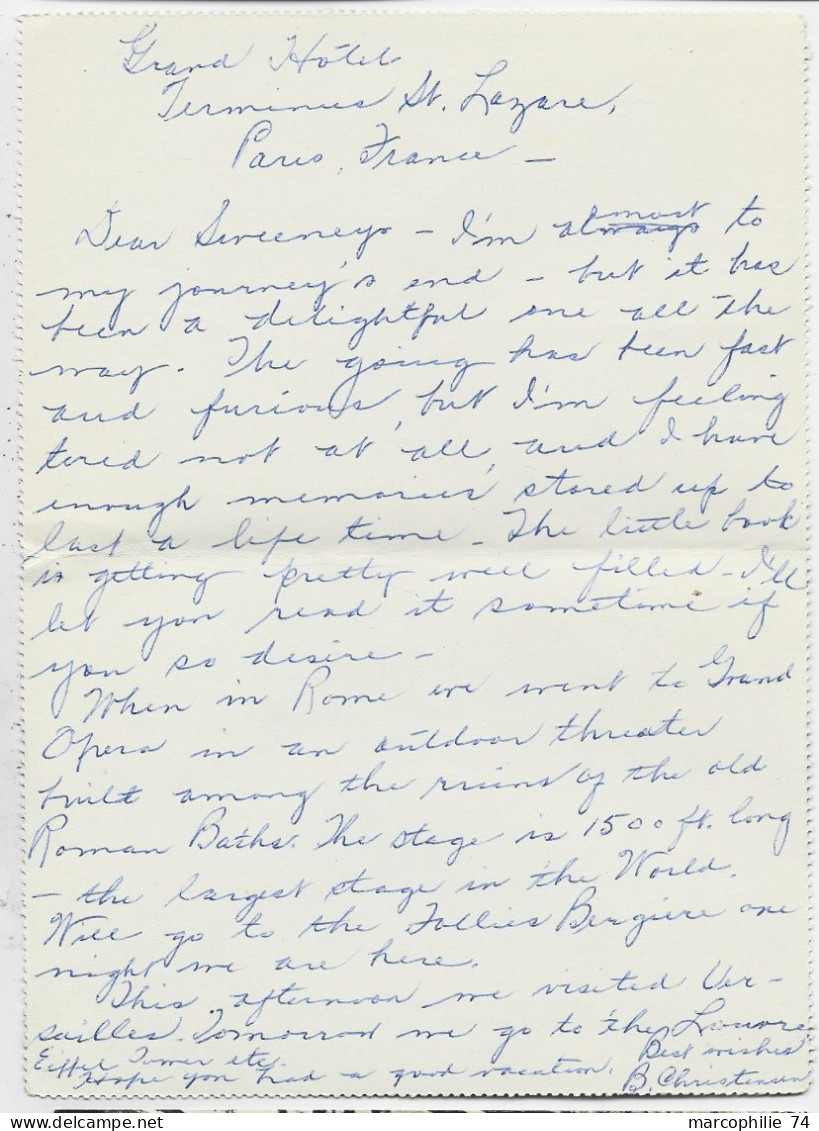 Grand Hôtel
Terminus St. Lazare,
Paris, France —
Dear Sweeneys — I'm almost to
my journey's end — but it has
been a delightful one all the
way. The going has been fast
and furious, but I'm feeling
tired not at all, and I have
enough memories stored up to
last a life time — The little book
is getting pretty well filled — I'll
let you read it sometime if
you so desire —
When in Rome we went to Grand
Opera in an outdoor threater
built among the ruins of the old
Roman Baths. The stage is 1500 ft. long
— the largest stage in the World.
Will go to the Follies Bergiere one
night we are here.
This afternoon we visited Ver-
sailles. Tomorrow we go to the Louvre
Eiffel Tower etc.
Hope you had a good vacation.
Best wishes
B. Christensen
marcophilie 74